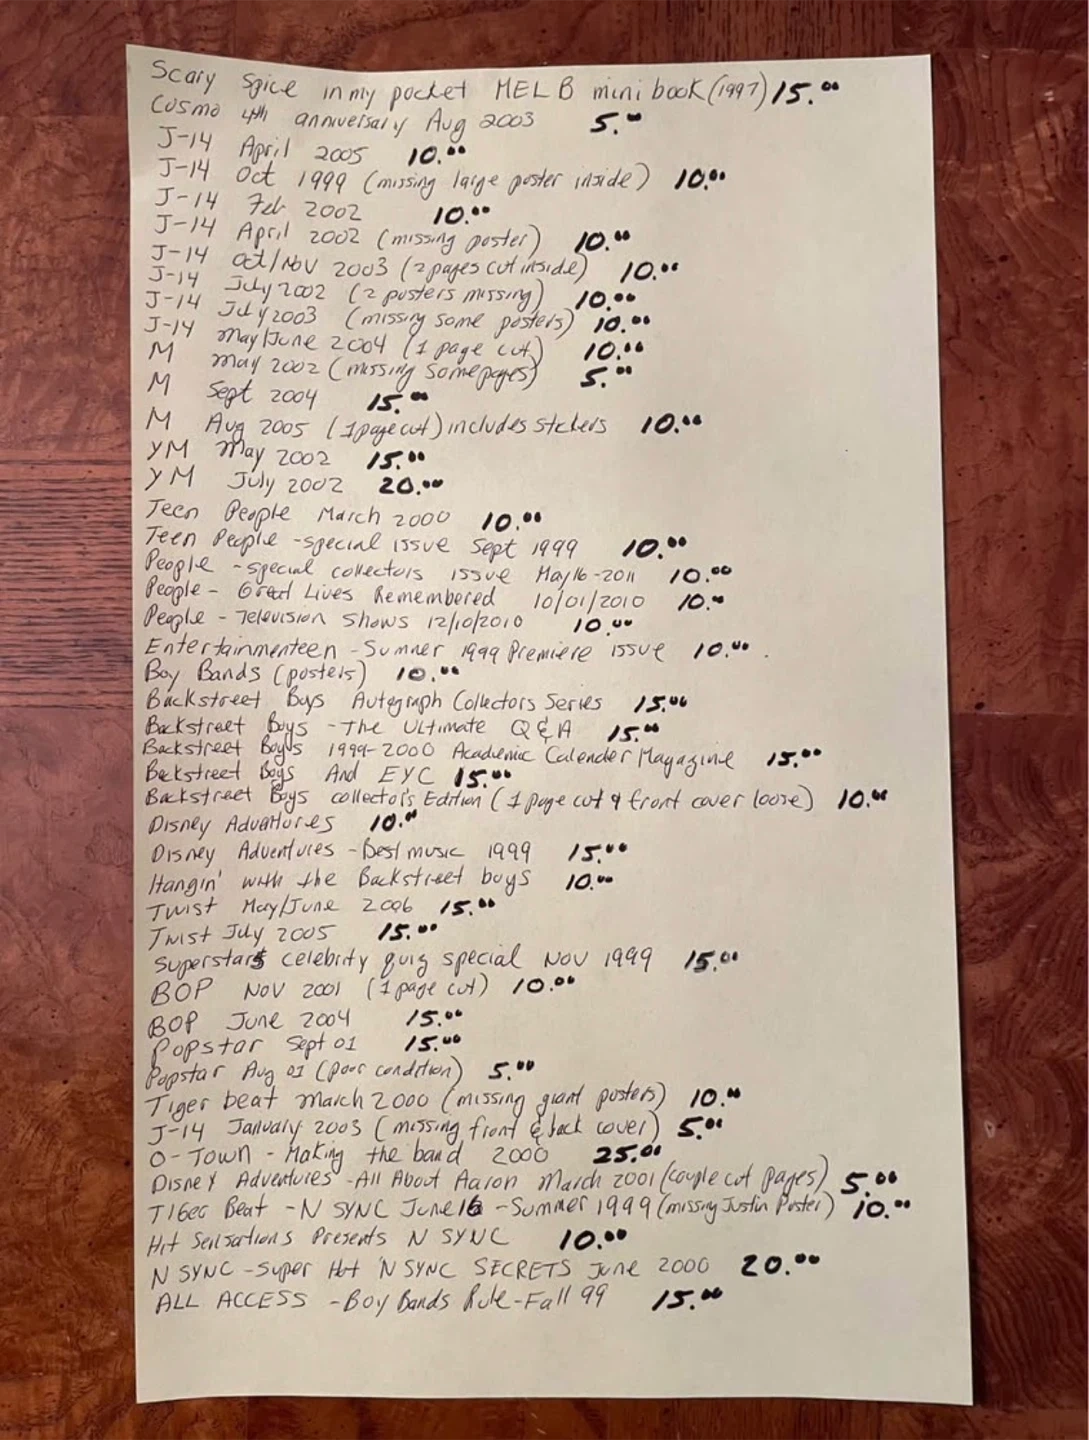 Scary Spice in my pocket MEL B mini book (1997) 15.00
Cosmo 4th anniversary Aug 2003 5.00
J-14 April 2005 10.00
J-14 Oct 1999 (missing large poster inside) 10.00
J-14 Feb 2002 10.00
J-14 April 2002 (missing poster) 10.00
J-14 Oct/Nov 2003 (2 pages cut inside) 10.00
J-14 July 2002 (2 posters missing) 10.00
J-14 July 2003 (missing some posters) 10.00
J-14 May/June 2004 (1 page cut) 10.00
M May 2002 (missing some pages) 5.00
M Sept 2004 15.00
M Aug 2005 (1 page cut) includes stickers 10.00
YM May 2002 15.00
YM July 2002 20.00
Teen People March 2000 10.00
Teen People - special issue Sept 1999 10.00
People - special collectors issue May 16-2011 10.00
People - Great Lives Remembered 10/01/2010 10.00
People - Television Shows 12/10/2010 10.00
Entertainmenteen - Summer 1999 Premiere issue 10.00
Boy Bands (posters) 10.00
Backstreet Boys Autograph Collectors Series 15.00
Backstreet Boys - The Ultimate Q & A 15.00
Backstreet Boys 1999-2000 Academic Calender Magazine 15.00
Backstreet Boys And EYC 15.00
Backstreet Boys collector's Edition (1 page cut & front cover loose) 10.00
Disney Adventures 10.00
Disney Adventures - Best music 1999 15.00
Hangin' with the Backstreet boys 10.00
Twist May/June 2006 15.00
Twist July 2005 15.00
Superstars celebrity quiz special Nov 1999 15.00
BOP Nov 2001 (1 page cut) 10.00
BOP June 2004 15.00
Popstar Sept 01 15.00
Popstar Aug 01 (poor condition) 5.00
Tiger beat March 2000 (missing giant posters) 10.00
J-14 January 2003 (missing front & back cover) 5.00
O-Town - Making the band 2000 25.00
Disney Adventures - All About Aaron March 2001 (couple cut pages) 5.00
TIGer Beat - N SYNC June 16 - Summer 1999 (missing Justin Poster) 10.00
Hit Sensations Presents N SYNC 10.00
N SYNC - Super Hot 'N SYNC SECRETS June 2000 20.00
ALL ACCESS - Boy Bands Rule - Fall 99 15.00